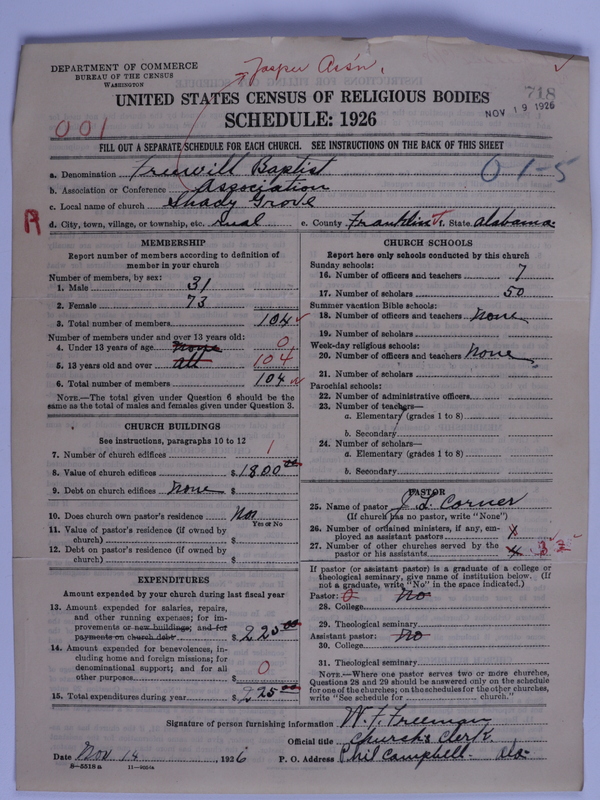 DEPARTMENT OF COMMERCE
BUREAU OF THE CENSUS
WASHINGTON
Jasper Ass'n.
718
NOV 19 1926
UNITED STATES CENSUS OF RELIGIOUS BODIES
SCHEDULE: 1926
001
FILL OUT A SEPARATE SCHEDULE FOR EACH CHURCH. SEE INSTRUCTIONS ON THE BACK OF THIS SHEET
0-1-5
a. Denomination Freewill Baptist
b. Association or Conference Association
c. Local name of church Shady Grove
R
d. City, town, village, or township, etc. rural e. County Franklin f. State Alabama
MEMBERSHIP
Report number of members according to definition of
member in your church
Number of members, by sex:
1. Male 31
2. Female 73
3. Total number of members 104
Number of members under and over 13 years old:
4. Under 13 years of age none 0
5. 13 years old and over all 104
6. Total number of members 104
NOTE.—The total given under Question 6 should be the
same as the total of males and females given under Question 3.
CHURCH BUILDINGS
See instructions, paragraphs 10 to 12
7. Number of church edifices 1
8. Value of church edifices $1800.00
9. Debt on church edifices None $
10. Does church own pastor's residence No
Yes or No
11. Value of pastor's residence (if owned by
church) $
12. Debt on pastor's residence (if owned by
church) $
EXPENDITURES
Amount expended by your church during last fiscal year
13. Amount expended for salaries, repairs,
and other running expenses; for im-
provements or new buildings; and for
payments on church debt $225.00
14. Amount expended for benevolences, in-
cluding home and foreign missions; for
denominational support; and for all
other purposes $ 0
15. Total expenditures during year $225.00
CHURCH SCHOOLS
Report here only schools conducted by this church
Sunday schools:
16. Number of officers and teachers 7
17. Number of scholars 50
Summer vacation Bible schools:
18. Number of officers and teachers None
19. Number of scholars
Week-day religious schools:
20. Number of officers and teachers None
21. Number of scholars
Parochial schools:
22. Number of administrative officers
23. Number of teachers—
a. Elementary (grades 1 to 8)
b. Secondary
24. Number of scholars—
a. Elementary (grades 1 to 8)
b. Secondary
PASTOR
25. Name of pastor J. L. Corner
(If church has no pastor, write "None")
26. Number of ordained ministers, if any, em-
ployed as assistant pastors x
27. Number of other churches served by the
pastor or his assistants
If pastor (or assistant pastor) is a graduate of a college or
theological seminary, give name of institution below. (If
not a graduate, write "No" in the space indicated.)
Pastor: 0 No
28. College
29. Theological seminary
Assistant pastor: No
30. College
31. Theological seminary
NOTE.—Where one pastor serves two or more churches,
Questions 28 and 29 should be answered only on the schedule
for one of the churches; on the schedules for the other churches,
write "See schedule for church."
Signature of person furnishing information W. F. Freeman
Official title Church Clerk
Date Nov 14, 1926 P. O. Address Phil Campbell Ala.
8—5518a 11—9004a